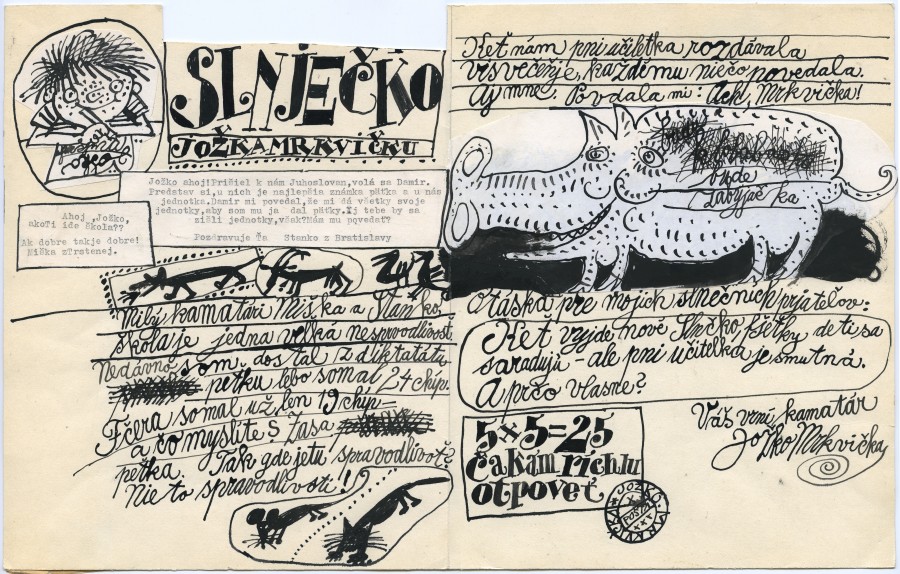 SLNJEČKO
JOŽKA MRKVIČKU
Jožko ahoj!Pričiel k nám Juhoslovan,volá sa Damir.
Predstav si,u nich je najlepšia známka päťka a u nás
jednotka.Damir mi povedal,že mi dá všetky svoje
jednotky,aby som mu ja dal päťky.Aj tebe by sa
zišli jednotky,však?Mám mu povedať?
Pozdravuje ťa Stanko z Bratislavy
Ahoj ,Jožko,
akoTi ide škola??
Ak dobre takje dobre!
Miška zTrstenej.
Milý kamatári Miš,ka a Stan ko,
Škola je jedna velká nesprvodlivosť.
Nedávno som, dostal z diktatátu
petku lebo somal 24 chip.
Fčera somal už len 19 chyp-
a čo myslíte S Zasa
peťka. Tak gde je tu spravodlivosť?
Nie to spravodlivosti!
Keť nám pni učiletka rozdávala
visvečeňje, každému niečo povedala.
Aj mne. Povdala mi: Ach, Mrkvička!
bude
zabyjač ka
Otáska pre mojich slnečních prjateľov:
Keť vyjde nové Slnčko fšetky deti sa
saradujú - ale pni učitelka je smutná.
A prčo vlasne?
5×5=25
čakám richlu
otpoveť
Váš vrní kamatár
Jožko Mrkvička
JOŽKO MRKVIČKA
POŠTA